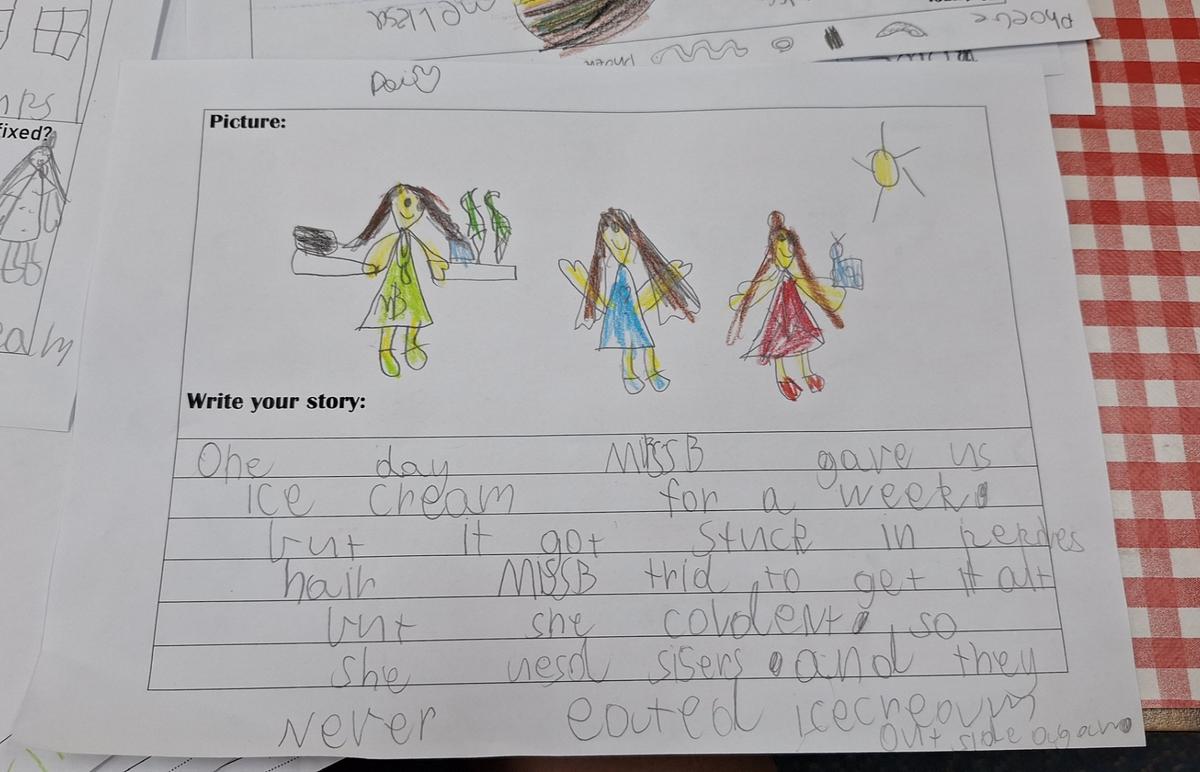 mellesa
phoebe
mps
fixed?
eam
Picture:
B
Write your story:
One day MissB gave us
ice cream for a week.
but it got stuck in peples
hair MissB trid to get it alt
but she coudent, so
she uesd sisers and they
never eated icecream
out side agan